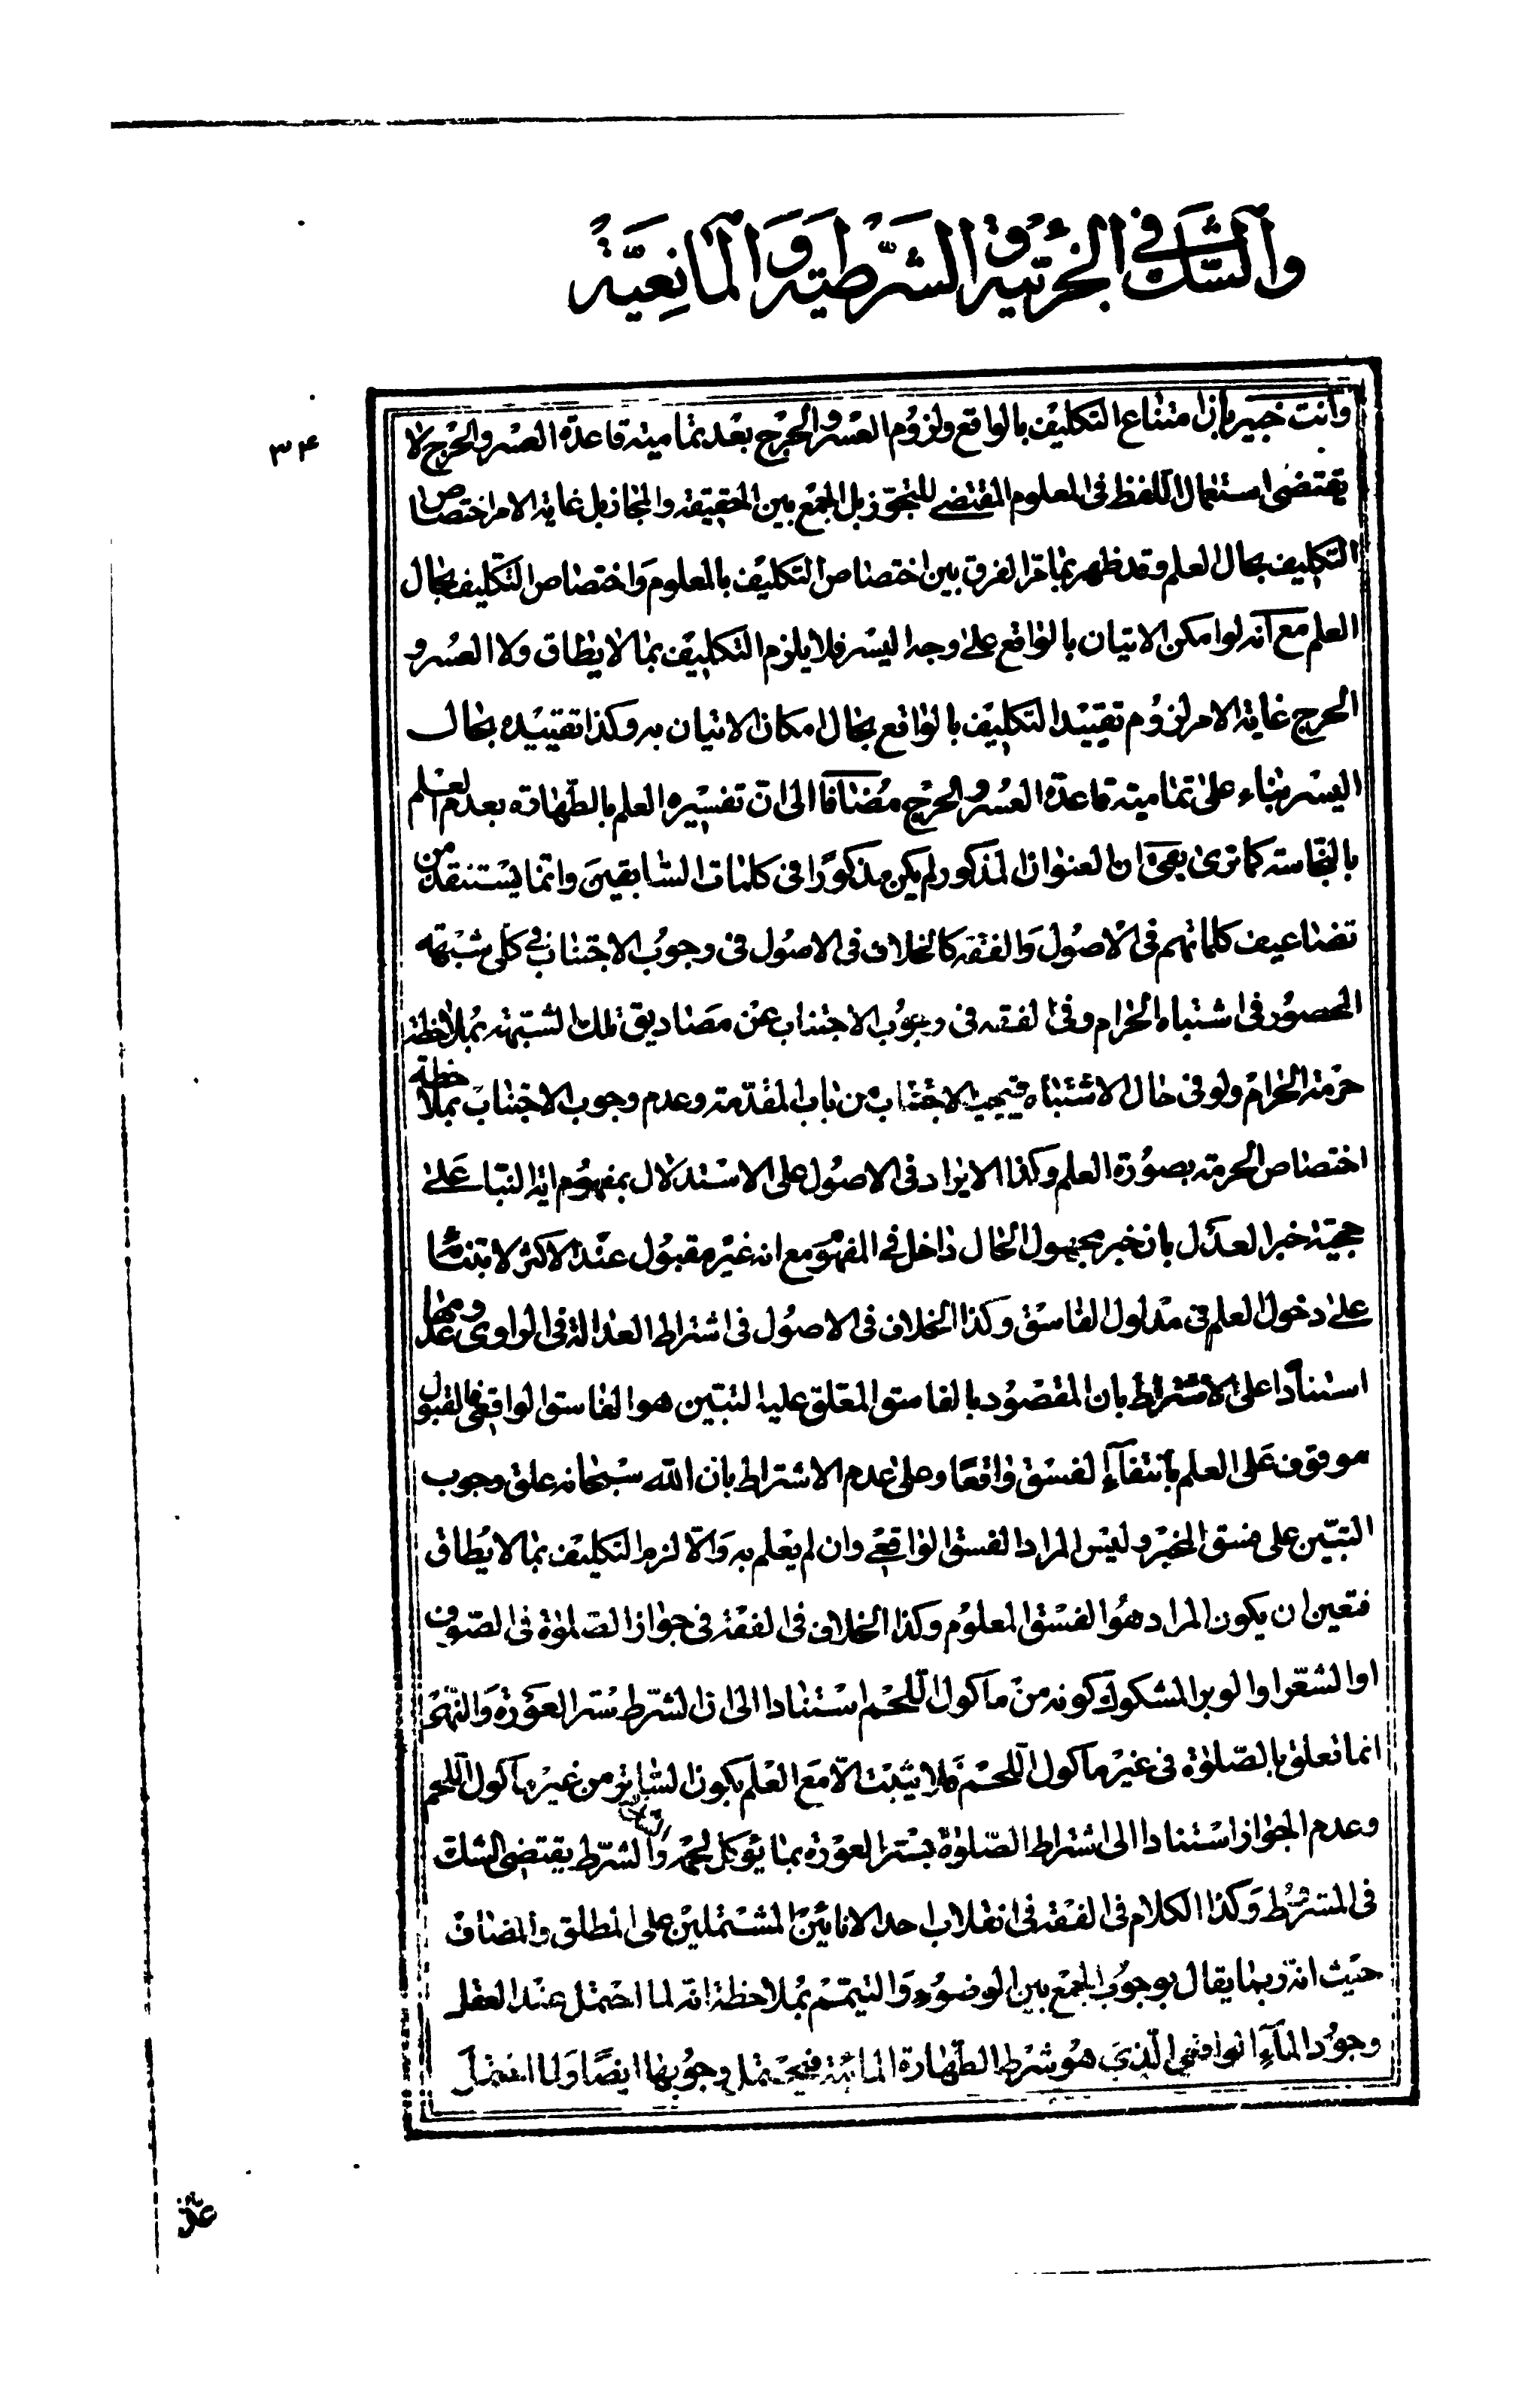 والشك في الجزئية والشرطية والمانعية
٣٤
وانت خبير بان امتناع التكليف بالواقع ولزوم العسر والحرج بعد تمامية قاعدة العسر والحرج لا
يقتضى استعمال اللفظ فى المعلوم المقتضى للتجوّز بل الجمع بين الحقيقة والمجاز بل غاية الامر اختصاص
التكليف بحال العلم وقد ظهر بما مرّ الفرق بين اختصاص التكليف بالمعلوم واختصاص التكليف بحال
العلم مع انه لو امكن الاتيان بالواقع على وجه اليسر فلا يلزم التكليف بما لا يطاق ولا العسر و
الحرج غاية الامر لزوم تقييد التكليف بالواقع بحال امكان الاتيان به وكذا تقييده بحال
اليسر بناء على تمامية قاعدة العسر والحرج مضافا الى انّ تفسيره العلم بالطهارة بعدم العلم
بالنجاسة كما ترى بقى ان العنوان المذكور لم يكن مذكورًا فى كلمات السابقين وانما يستنقد من
تضاعيف كلماتهم فى الاصول والفقه كالخلاف فى الاصول فى وجوب الاجتناب فى كلى شبهة
المحصور فى اشتباه الحرام وفى الفقه فى وجوب الاجتناب عن مصاديق تلك الشبهة بملاحظة
حرمة الحرام ولو فى حال الاشتباه فيجب الاجتناب من باب المقدّمة وعدم وجوب الاجتناب بملاحظة
اختصاص الحرمة بصورة العلم وكذا الايراد فى الاصول على الاستدلال بمفهوم اية النبأ على
حجية خبر العدل بان خبر مجهول الحال داخل فى المفهوم مع انه غير مقبول عند الاكثر لابتنائها
على دخول العلم فى مدلول الفاسق وكذا الخلاف فى الاصول فى اشتراط العدالة فى الراوى وعدمها
استنادا على الاشتراط بان المقصود بالفاسق المعلق عليه التبيّن هو الفاسق الواقعى فالقبول
موقوف على العلم بانتفاء الفسق واقعًا وعلى عدم الاشتراط بان الله سبحانه علق وجوب
التبيّن على فسق المخبر وليس المراد الفسق الواقعى وان لم يعلم به والّا لزم التكليف بما لا يُطاق
فتعين ان يكون المراد هو الفسق المعلوم وكذا الخلاف فى الفقه فى جواز الصلوة فى الصّوف
او الشّعر او الوبر المشكوك كونه من مأكول اللحم استنادا الى ان الشرط ستر العورة والنهى
انما تعلق بالصّلوة فى غير مأكول اللحم فلا يثبت الّا مع العلم بكون الساتر من غير مأكول اللحم
وعدم الجواز استنادا الى اشتراط الصّلوة بستر العورة بما يؤكل لحمه والشك فى الشرط يقتضى الشك
فى المشروط وكذا الكلام فى الفقه فى انقلاب احد الانائين المشتملين على المطلق والمضاف
حيث انه ربما يقال بوجوب الجمع بين الوضوء والتيمّم بملاحظة انه لما احتمل عند العقل
وجود الماء الواقعى الّذى هو شرط الطهارة المائية فيحتمل وجوبها ايضًا ولما